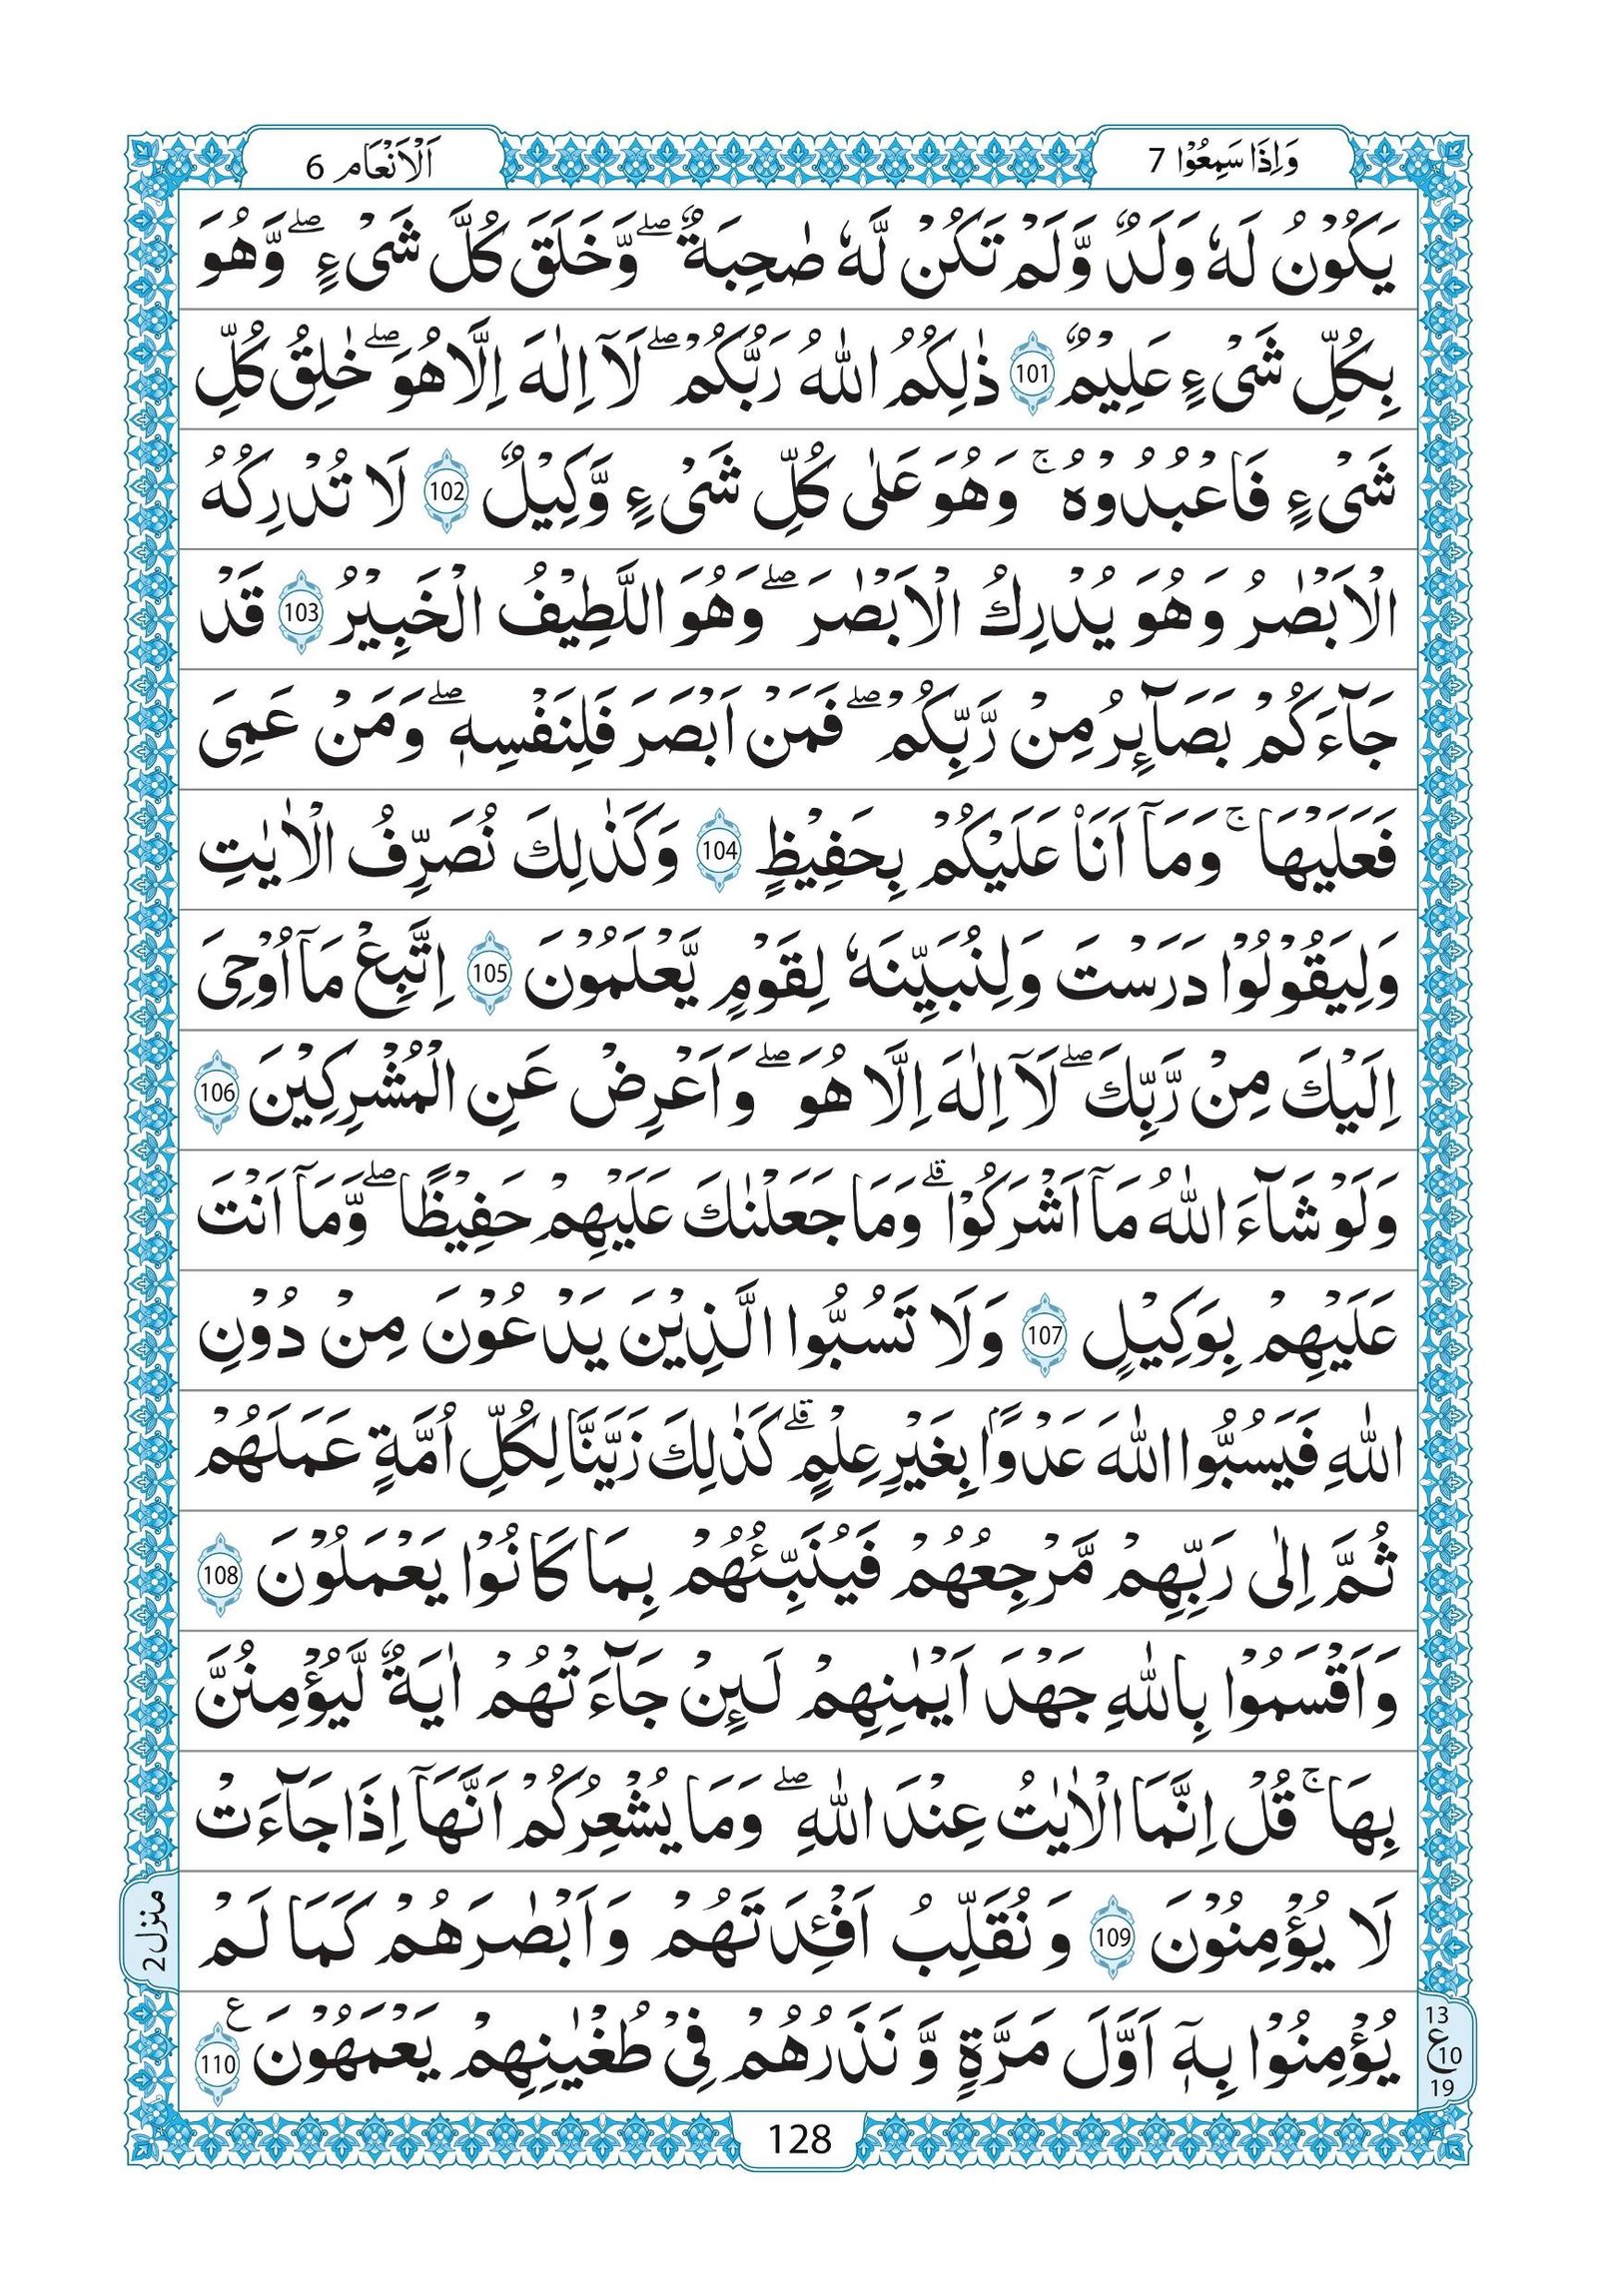 وَاِذَا سَمِعُوْا 7
اَلْاَنْعَام 6
يَكُوْنُ لَهٗ وَلَدٌ وَّلَمْ تَكُنْ لَّهٗ صٰحِبَةٌ ۖ وَّخَلَقَ كُلَّ شَیْءٍ ۖ وَّهُوَ
بِكُلِّ شَیْءٍ عَلِيْمٌ 101 ذٰلِكُمُ اللّٰهُ رَبُّكُمْ ۖ لَآ اِلٰهَ اِلَّا هُوَ ۖ خٰلِقُ كُلِّ
شَیْءٍ فَاعْبُدُوْهُ ۚ وَهُوَ عَلٰی كُلِّ شَیْءٍ وَّكِيْلٌ 102 لَا تُدْرِكُهُ
الْاَبْصٰرُ وَهُوَ يُدْرِكُ الْاَبْصٰرَ ۖ وَهُوَ اللَّطِيْفُ الْخَبِيْرُ 103 قَدْ
جَآءَكُمْ بَصَآىِٕرُ مِنْ رَّبِّكُمْ ۖ فَمَنْ اَبْصَرَ فَلِنَفْسِهٖ ۖ وَمَنْ عَمِیَ
فَعَلَيْهَا ۚ وَمَآ اَنَا۠ عَلَيْكُمْ بِحَفِيْظٍ 104 وَكَذٰلِكَ نُصَرِّفُ الْاٰيٰتِ
وَلِيَقُوْلُوْا دَرَسْتَ وَلِنُبَيِّنَهٗ لِقَوْمٍ يَّعْلَمُوْنَ 105 اِتَّبِعْ مَآ اُوْحِیَ
اِلَيْكَ مِنْ رَّبِّكَ ۖ لَآ اِلٰهَ اِلَّا هُوَ ۖ وَاَعْرِضْ عَنِ الْمُشْرِكِيْنَ 106
وَلَوْ شَآءَ اللّٰهُ مَآ اَشْرَكُوْا ۗ وَمَا جَعَلْنٰكَ عَلَيْهِمْ حَفِيْظًا ۖ وَّمَآ اَنْتَ
عَلَيْهِمْ بِوَكِيْلٍ 107 وَلَا تَسُبُّوا الَّذِيْنَ يَدْعُوْنَ مِنْ دُوْنِ
اللّٰهِ فَيَسُبُّوا اللّٰهَ عَدْوًاۢ بِغَيْرِ عِلْمٍ ۗ كَذٰلِكَ زَيَّنَّا لِكُلِّ اُمَّةٍ عَمَلَهُمْ
ثُمَّ اِلٰی رَبِّهِمْ مَّرْجِعُهُمْ فَيُنَبِّئُهُمْ بِمَا كَانُوْا يَعْمَلُوْنَ 108
وَاَقْسَمُوْا بِاللّٰهِ جَهْدَ اَيْمٰنِهِمْ لَىِٕنْ جَآءَتْهُمْ اٰيَةٌ لَّيُؤْمِنُنَّ
بِهَا ۚ قُلْ اِنَّمَا الْاٰيٰتُ عِنْدَ اللّٰهِ ۖ وَمَا يُشْعِرُكُمْ اَنَّهَآ اِذَا جَآءَتْ
لَا يُؤْمِنُوْنَ 109 وَنُقَلِّبُ اَفْئِدَتَهُمْ وَاَبْصٰرَهُمْ كَمَا لَمْ
يُؤْمِنُوْا بِهٖٓ اَوَّلَ مَرَّةٍ وَّنَذَرُهُمْ فِیْ طُغْيٰنِهِمْ يَعْمَهُوْنَ ع 110
منزل 2
13
ع 10
19
128